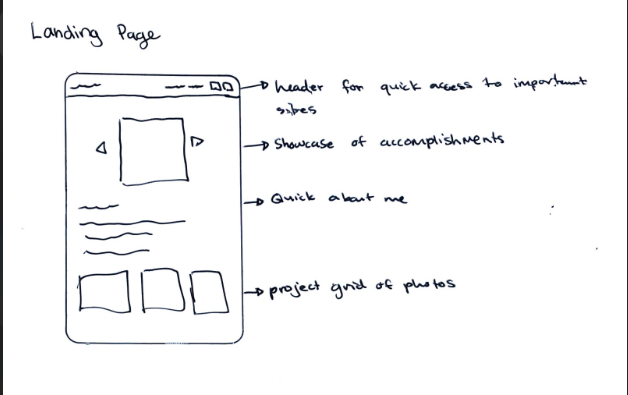 Landing Page
header for quick access to important
sites
Showcase of accomplishments
Quick about me
project grid of photos